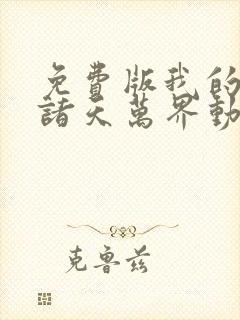 免費版我的
諸天萬界動
克魯茲